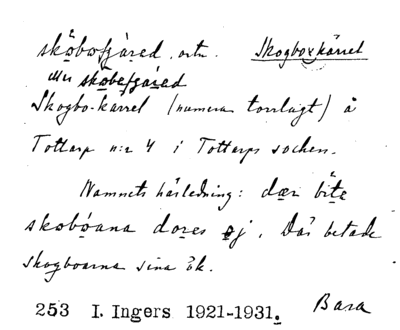 skǫ̈bofjàred, ortn. Skogboxkärret
eller skǫ̈befjáred
Skogbo-kärret (numera torrlagt) å
Tottarp n:r 4 i Tottarps socken.
Namnets härledning: dær bïte
skobóana dores ǫj. Där betade
skogboarna sina ök.
253 I. Ingers 1921-1931. Bara